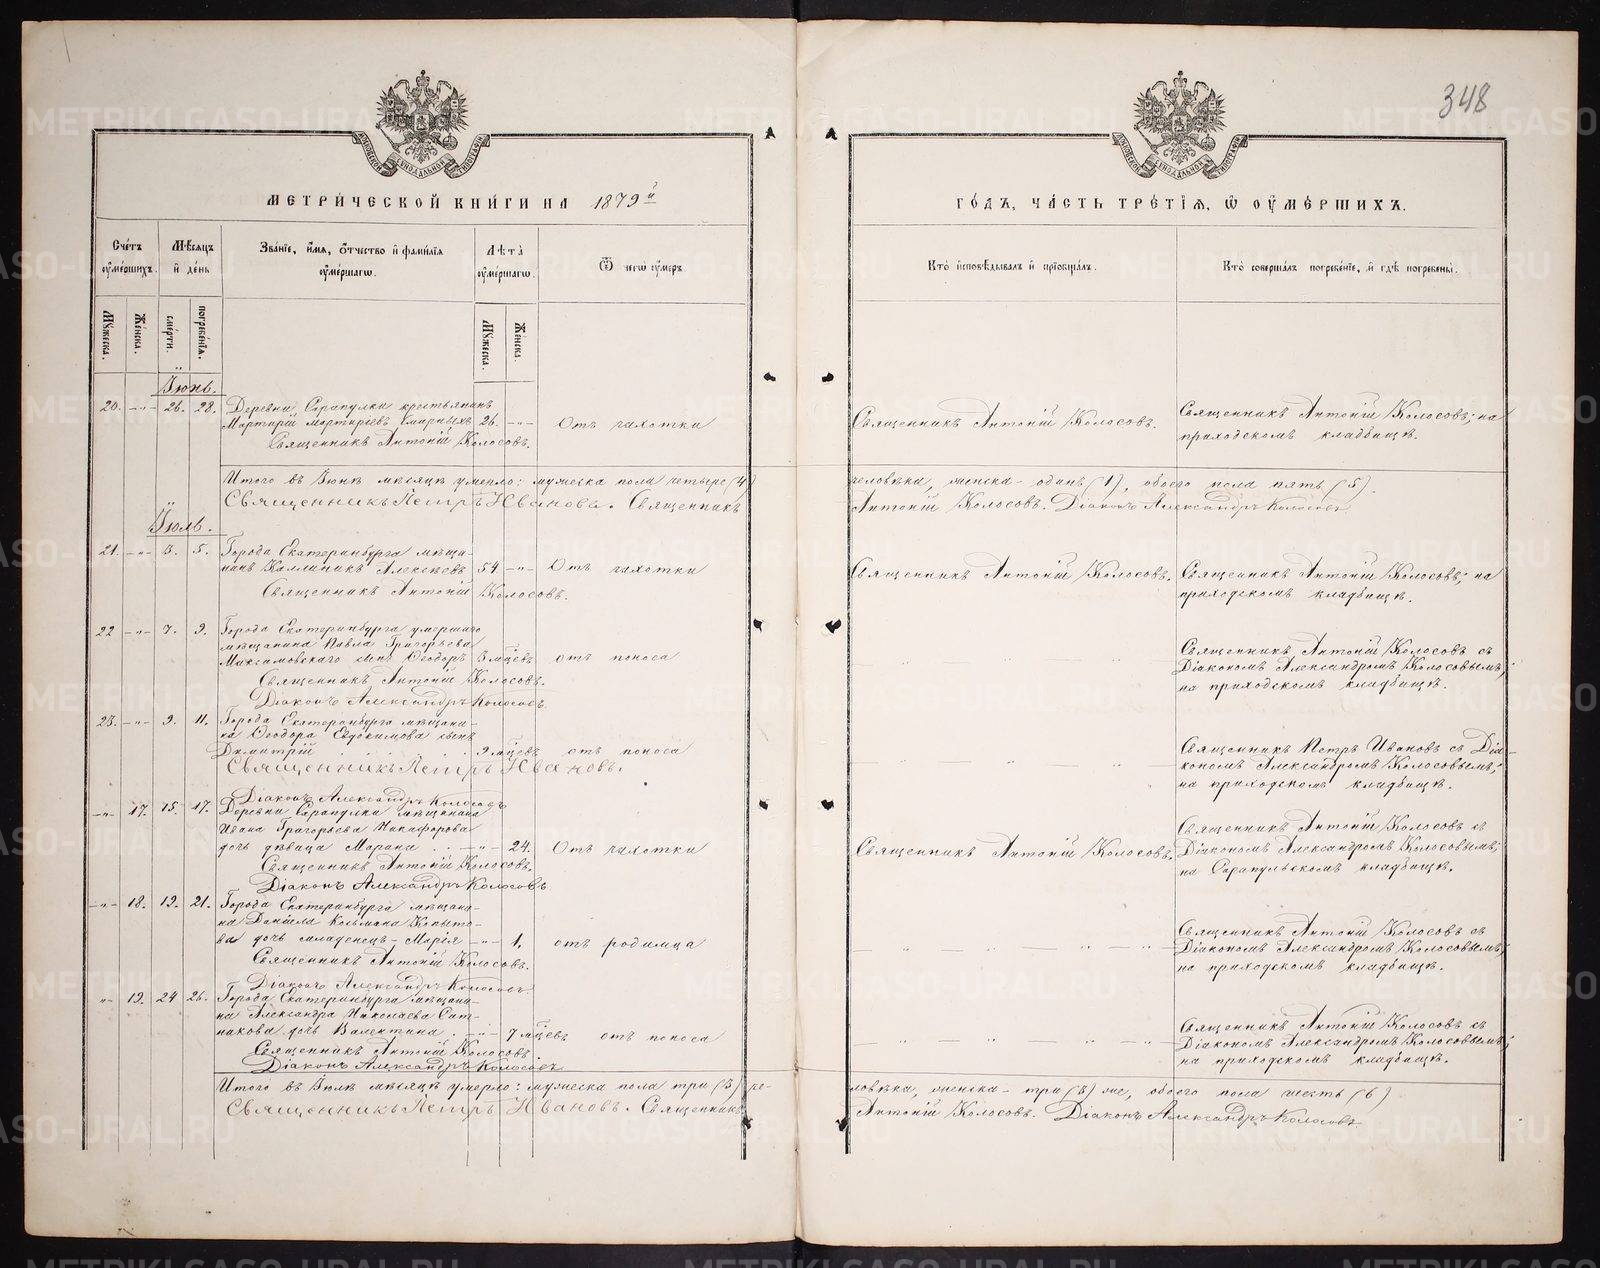 348
МЕТРИ́ЧЕСКОЙ КНИ́ГИ НА 1879й
ГО́ДЪ, ЧА́СТЬ ТРЕ́ТІЯ, Ѿ ОУМЕ́РШИХЪ.
Сче́тъ оуме́ршихъ.
Мѣ́сяцъ и де́нь
Зва́ніе, и́мя, о́тчество и фами́лія оуме́ршагѡ.
Лѣ́та оуме́ршагѡ.
Ѿ чегѡ оу́меръ
Кто̀ исповѣ́дывалъ и пріобща́лъ.
Кто̀ соверша́лъ погребе́ніе, и гдѣ̀ погребены̀.
Мꙋ́жеска.
Же́нска.
сме́рти.
погребе́нія.
Мꙋ́жеска.
Же́нска.
Іюнь.
20. -"- 26. 28. Деревни Сарапулки крестьянинъ
Мартирій Мартиріевъ 26. -"- Отъ чахотки
Священникъ Антоній Колосовъ.
Священникъ Антоній Колосовъ.
Священникъ Антоній Колосовъ; на
приходскомъ кладбищѣ.
Итого въ Іюнѣ мѣсяцѣ умерло: мужеска пола четыре (4)
человѣка, женска - одинъ (1), обоего пола пять (5).
Священникъ Петръ Ивановъ. Священникъ
Антоній Колосовъ. Діаконъ Александръ Колосовъ
Іюль.
21. -"- 3. 5. Города Екатеринбурга мѣща-
нинъ Каллиникъ Алексѣевъ 54 -"- Отъ чахотки
Священникъ Антоній Колосовъ.
Священникъ Антоній Колосовъ.
Священникъ Антоній Колосовъ; на
приходскомъ кладбищѣ.
22 -"- 7. 9. Города Екатеринбурга умершаго
мѣщанина Павла Григорьева
Максимовскаго сынъ Ѳеодоръ 3 мѣцевъ отъ поноса
Священникъ Антоній Колосовъ.
Діаконъ Александръ Колосовъ.
Священникъ Антоній Колосовъ съ
Діакономъ Александромъ Колосовымъ;
на приходскомъ кладбищѣ.
23. -"- 9. 11. Города Екатеринбурга мѣщани-
на Ѳеодора Евдокимова сынъ
Димитрій . . . . . 9 мѣцевъ отъ поноса
Священникъ Петръ Ивановъ.
Діаконъ Александръ Колосовъ
Священникъ Петръ Ивановъ съ Діа-
кономъ Александромъ Колосовымъ;
на приходскомъ кладбищѣ.
-"- 17. 15. 17. Деревни Сарапулки мѣщанина
Ивана Григорьева Никифорова
дочь дѣвица Марина . . -"- 24. Отъ чахотки
Священникъ Антоній Колосовъ.
Діаконъ Александръ Колосовъ
Священникъ Антоній Колосовъ.
Священникъ Антоній Колосовъ съ
Діакономъ Александромъ Колосовымъ;
на Сарапульскомъ кладбищѣ.
-"- 18. 19. 21. Города Екатеринбурга мѣщани-
на Даніила Козьмина Копыто-
ва дочь младенецъ - Марія -"- 1. отъ родимца
Священникъ Антоній Колосовъ.
Діаконъ Александръ Колосовъ.
Священникъ Антоній Колосовъ съ
Діакономъ Александромъ Колосовымъ;
на приходскомъ кладбищѣ.
-"- 19. 24 26. Города Екатеринбурга мѣщани-
на Александра Николаева Сит-
никова дочь Валентина . -"- 7 мѣцевъ отъ поноса
Священникъ Антоній Колосовъ.
Діаконъ Александръ Колосовъ
Священникъ Антоній Колосовъ съ
Діакономъ Александромъ Колосовымъ;
на приходскомъ кладбищѣ.
Итого въ Іюлѣ мѣсяцѣ умерло: мужеска пола три (3) че-
ловѣка, женска - три (3) же, обоего пола шесть (6)
Священникъ Петръ Ивановъ. Священникъ
Антоній Колосовъ. Діаконъ Александръ Колосовъ
METRIKI.GASO-URAL.RU